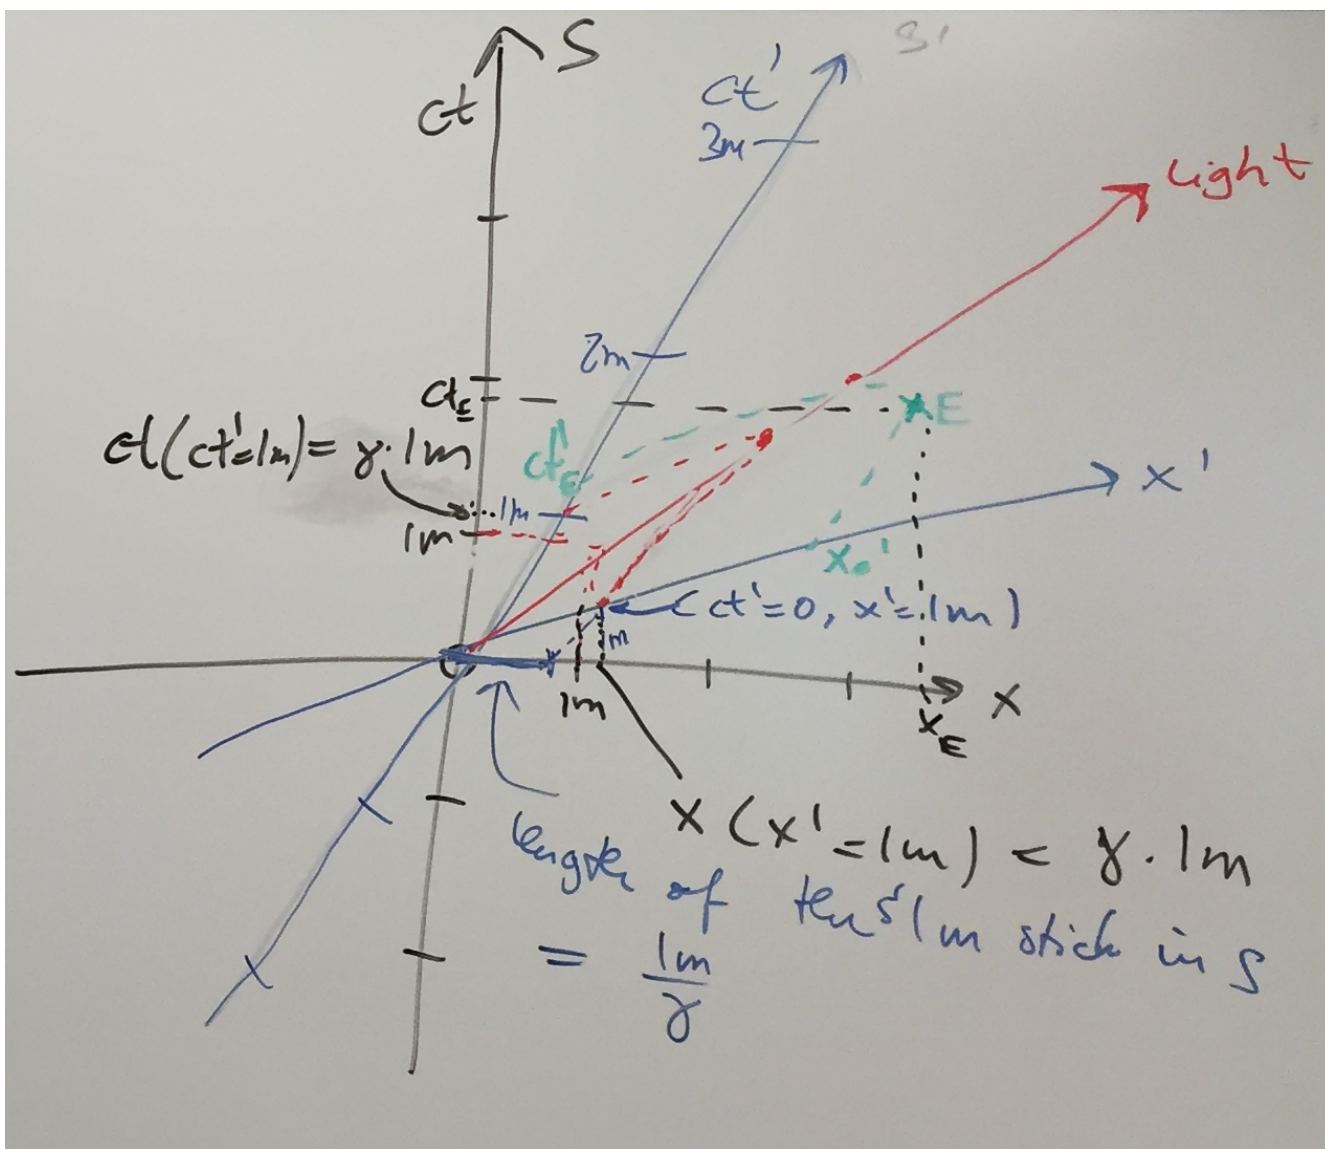 S
S'
ct
ct'
3m
light
2m
ct_E
E
ct(ct'=1m) = γ·1m
ct'_E
x'
1m
1m
x_e'
(ct'=0, x'=1m)
m
1m
x
x_E
x(x'=1m) = γ·1m
length of the S' 1m stick in S
= 1m/γ